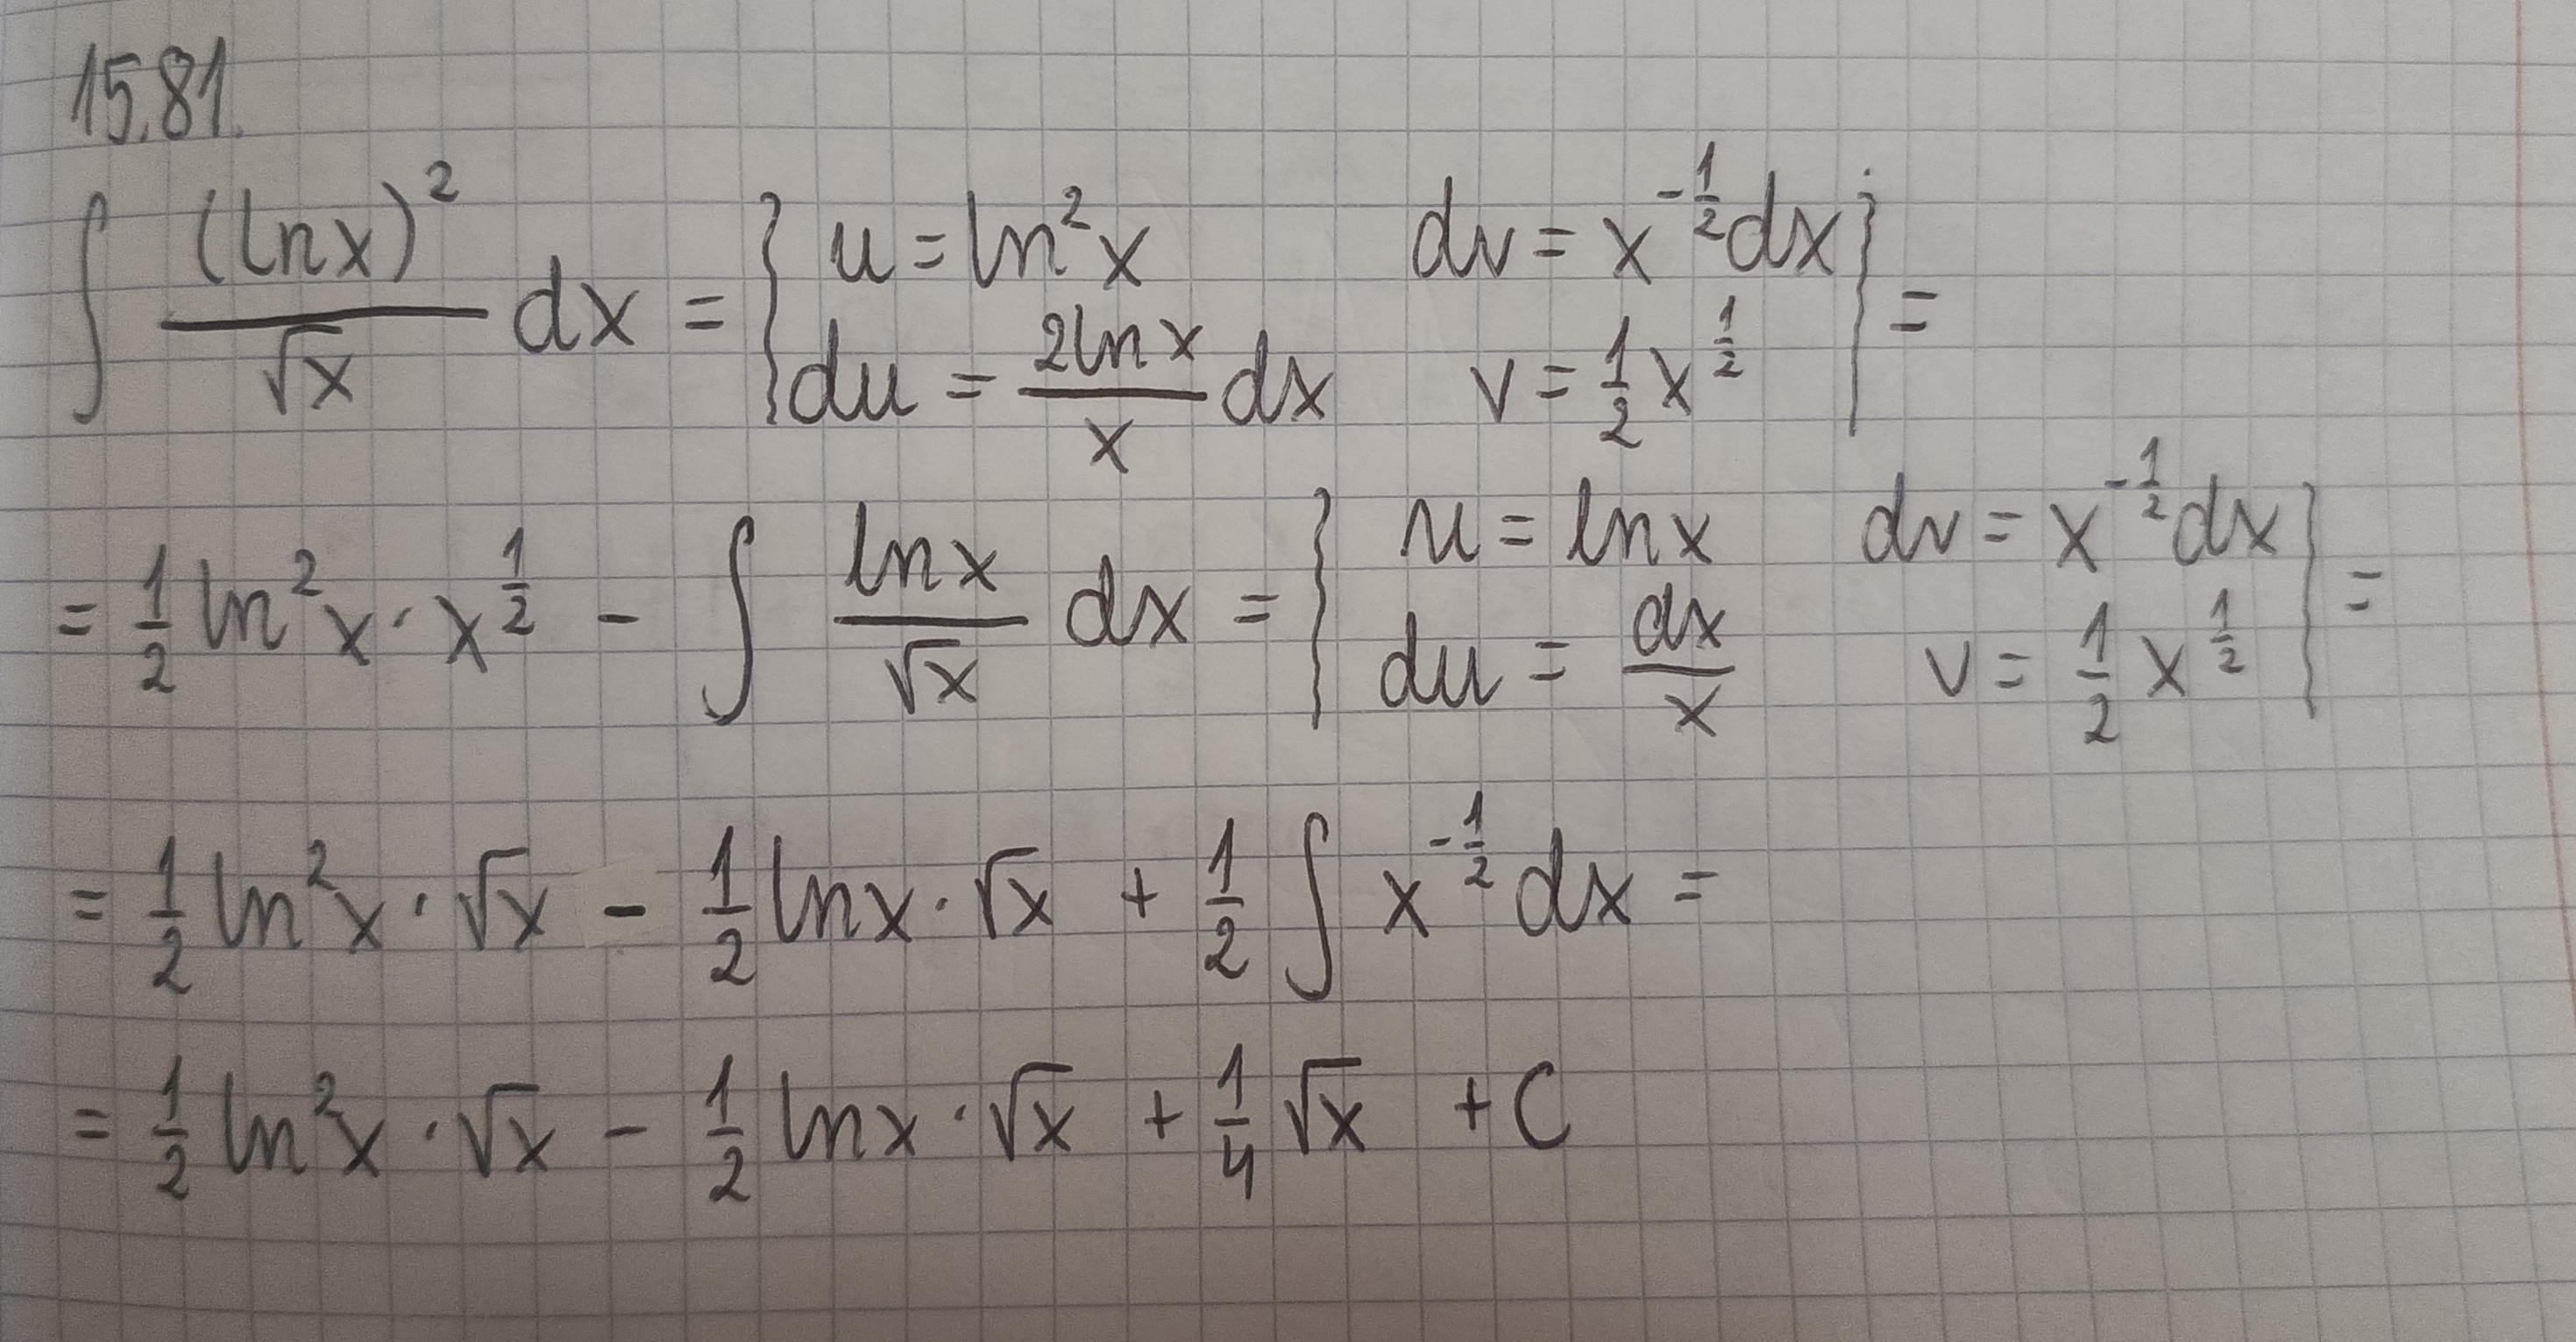 15.81.
∫ (lnx)²/√x dx = { u = ln²x dv = x^(-1/2)dx du = 2lnx/x dx v = 1/2 x^(1/2) } =
= 1/2 ln²x · x^(1/2) - ∫ lnx/√x dx = { u = lnx dv = x^(-1/2)dx du = dx/x v = 1/2 x^(1/2) } =
= 1/2 ln²x · √x - 1/2 lnx · √x + 1/2 ∫ x^(-1/2) dx =
= 1/2 ln²x · √x - 1/2 lnx · √x + 1/4 √x + C